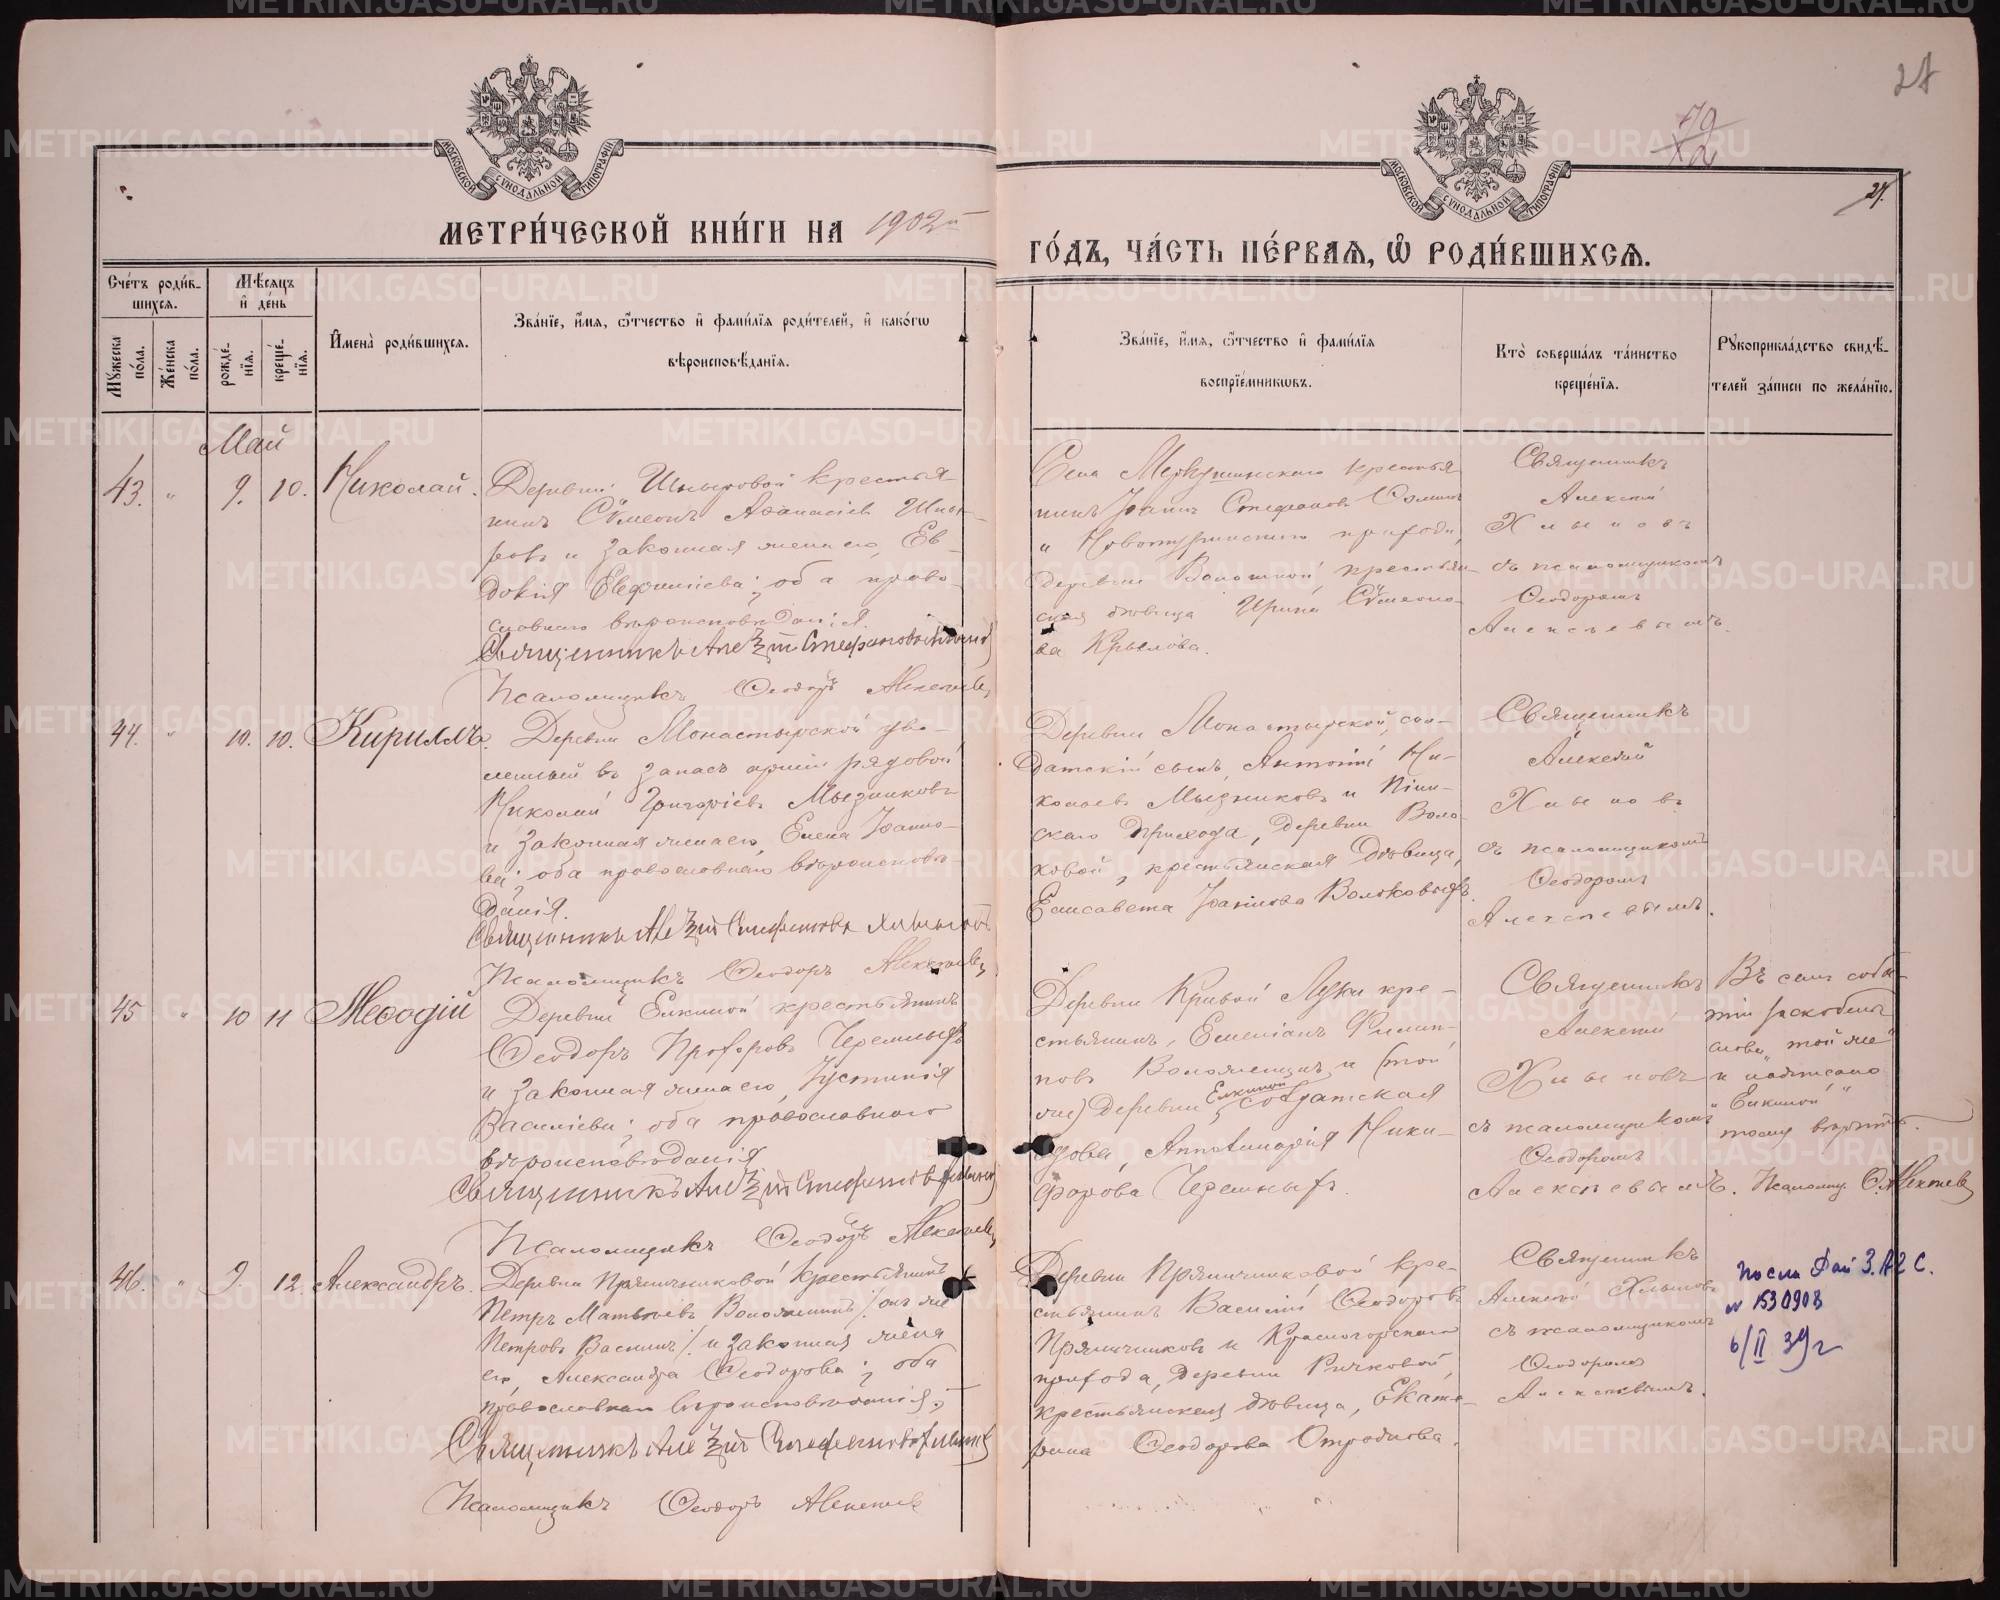 27
79
72
27.
МЕТРИ́ЧЕСКОЙ КНИ́ГИ НА 1902й
ГО́ДЪ, ЧА́СТЬ ПЕ́РВАЯ, Ѿ РОДИ́ВШИХСЯ.
МОСКОВСКОЙ СУНОДАЛЬНОЙ ТИПОГРАФІИ
МОСКОВСКОЙ СУНОДАЛЬНОЙ ТИПОГРАФІИ
Сче́тъ роди́в-
шихся.
Мѣсяцъ
и́ де́нь
Му́жеска по́ла.
Же́нска по́ла.
рожде́-
нїя.
креще́-
нїя.
И҆мена̀ роди́вшихся.
Зва́нїе, и҆́мя, ѻ҆́тчество и҆ фами́лїя роди́телей, и҆ како́гѡ
вѣроисповѣ́данїя.
Зва́нїе, и҆́мя, ѻ҆́тчество и҆ фами́лїя
воспрїе́мникѡвъ.
Кто̀ соверша́лъ та́инство
креще́нїя.
Рꙋкоприкла́дство свидѣ́-
телей за́писи по жела́нїю.
Май
43. " 9. 10. Николай.
Деревни Шныровой крестья-
нинъ Сѵмеонъ Аѳанасіевъ Шны-
ровъ и законная жена его, Ев-
докія Евѳиміева; оба право-
славнаго вѣроисповѣданія.
Священникъ Алексій Стефановъ Хлыновъ
Псаломщикъ Ѳеодоръ Алексѣевъ
Села Меркушинскаго крестья-
нинъ Іоаннъ Стефановъ Соминъ
и Новотуринскаго прихода,
деревни Волошной, крестьян-
ская дѣвица Ирина Сѵмеоно-
ва Крылова.
Священникъ
Алексій
Хлыновъ
съ псаломщикомъ
Ѳеодоромъ
Алексѣевымъ.
44. " 10. 10. Кириллъ.
Деревни Монастырской уво-
ленный въ запасъ арміи рядовой
Николай Григоріевъ Мызниковъ
и законная жена его, Елена Іоанно-
ва; оба православнаго вѣроисповѣ-
данія.
Священникъ Алексій Стефановъ Хлыновъ
Псаломщикъ Ѳеодоръ Алексѣевъ
Деревни Монастырской, сол-
датскій сынъ, Антоній Ни-
колаевъ Мызниковъ и
скаго прихода, деревни Воло-
ковой, крестьянская дѣвица,
Елисавета Іоаннова Волоковыхъ.
Священникъ
Алексій
Хлыновъ
съ псаломщикомъ
Ѳеодоромъ
Алексѣевымъ.
45 " 10 11 Меѳодій
Деревни Елкиной крестьянинъ
Ѳеодоръ Прохоровъ Черемныхъ
и законная жена его, Іустинія
Василіева; оба православнаго
вѣроисповѣданія
Священникъ Алексій Стефановъ Хлыновъ
Псаломщикъ Ѳеодоръ Алексѣевъ
Деревни Кривой Луки кре-
стьянинъ, Емеліанъ Филип-
повъ Воложенинъ и (той
же) деревни Елкиной солдатская
вдова, Апполинарія Ники-
форова Черемныхъ.
Священникъ
Алексій
Хлыновъ
съ псаломщикомъ
Ѳеодоромъ
Алексѣевымъ.
Въ семъ собы-
тіи
слово "той же"
и написано
"Елкиной"
тому вѣрить.
Псаломщ. Ѳ. Алексѣевъ
46. " 9. 12. Александръ.
Деревни Пряничниковой крестьянинъ
Петръ Матѳіевъ Воложенинъ /онъ же
Петровъ Василій/ и законная жена
его, Александра Ѳеодорова; оба
православнаго вѣроисповѣданія;
Священникъ Алексій Стефановъ Хлыновъ
Псаломщикъ Ѳеодоръ Алексѣевъ
Деревни Пряничниковой кре-
стьянинъ Василій Ѳеодоровъ
Пряничниковъ и Красногорскаго
прихода, деревни Ричковой,
крестьянская дѣвица, Екате-
рина Ѳеодорова Отраднова.
Священникъ
Алексій Хлыновъ
съ псаломщикомъ
Ѳеодоромъ
Алексѣевымъ.
№ 1530908
6/II 39 г
METRIKI.GASO-URAL.RU